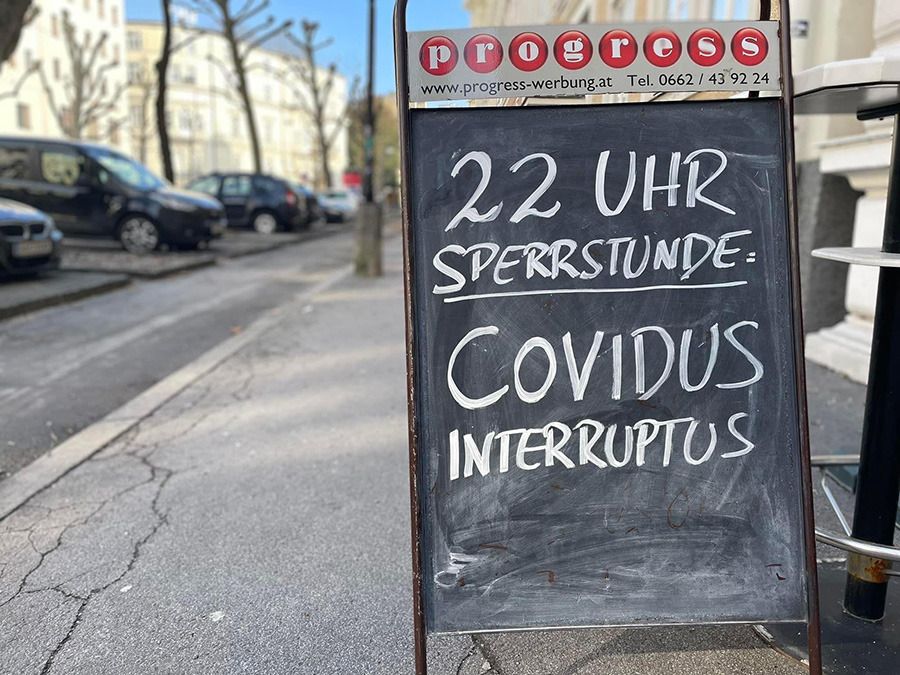 progress
www.progress-werbung.at Tel. 0662 / 43 92 24
22 UHR
SPERRSTUNDE:
COVIDUS
INTERRUPTUS